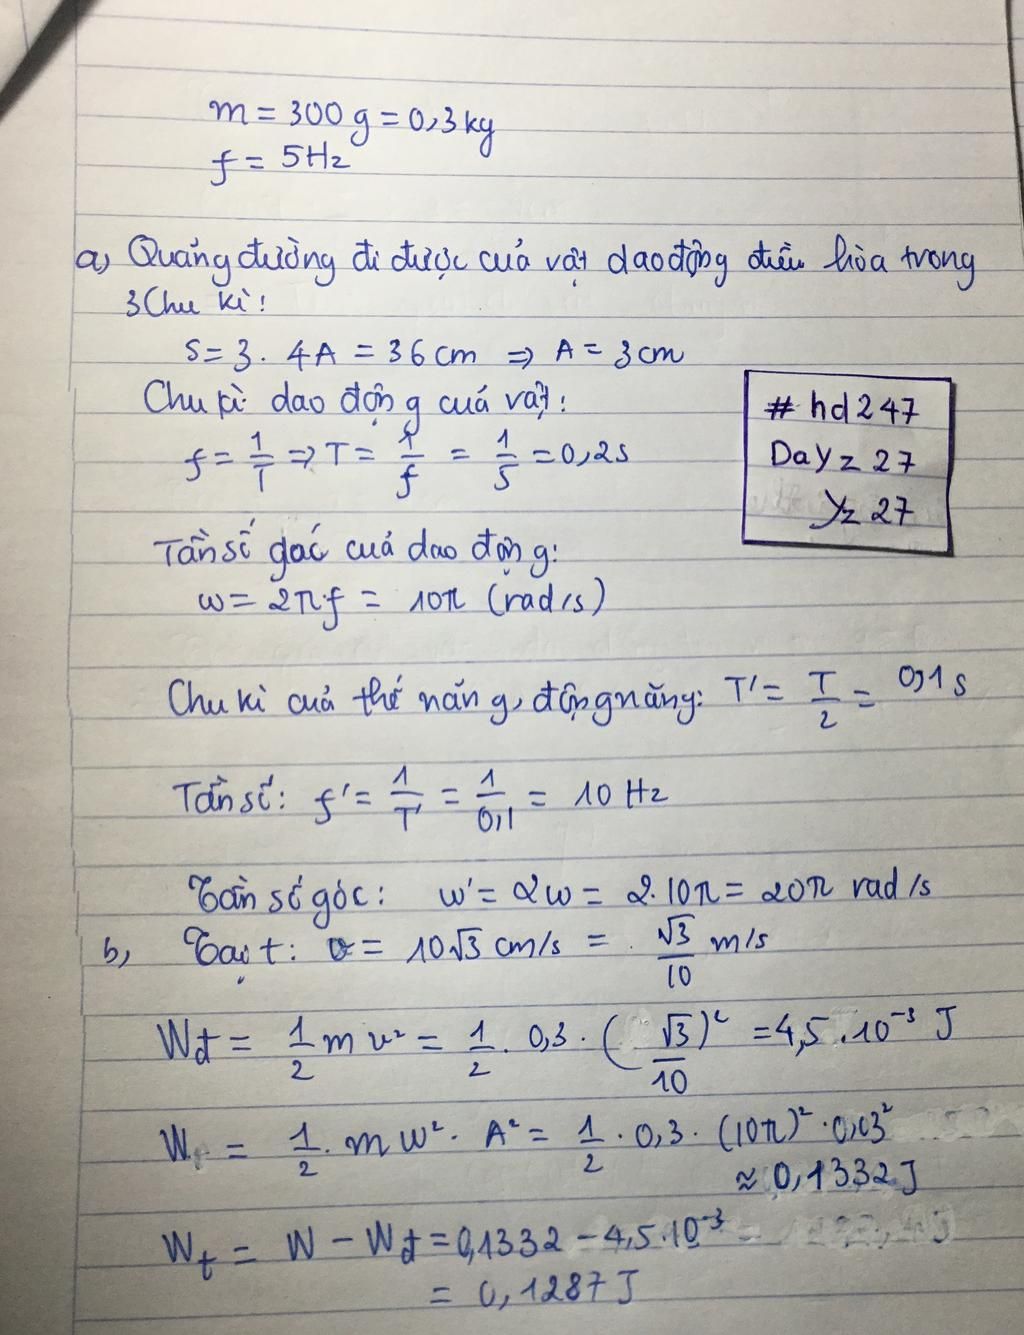 m = 300g = 0,3kg
f = 5Hz
a, Quảng đường đi được của vật dao động điều hòa trong
3 Chu kì:
S = 3. 4A = 36 cm ⇒ A = 3 cm
Chu kì dao động của vật:
f = 1/T ⇒ T = 1/f = 1/5 = 0,2s
# hd247
Day z 27
Yz 27
Tần số góc của dao động:
w = 2πf = 10π (rad/s)
Chu kì của thế năng, động năng: T' = T/2 = 0,1 s
Tần số: f' = 1/T' = 1/0,1 = 10 Hz
Tần số góc: w' = 2w = 2.10π = 20π rad/s
b, Tại t: v = 10√3 cm/s = √3/10 m/s
Wđ = 1/2 m v² = 1/2 . 0,3 . (√3/10)² = 4,5 . 10⁻³ J
W = 1/2 . m w² . A² = 1/2 . 0,3 . (10π)² . 0,03²
≈ 0,1332 J
Wt = W - Wđ = 0,1332 - 4,5.10⁻³
= 0,1287 J